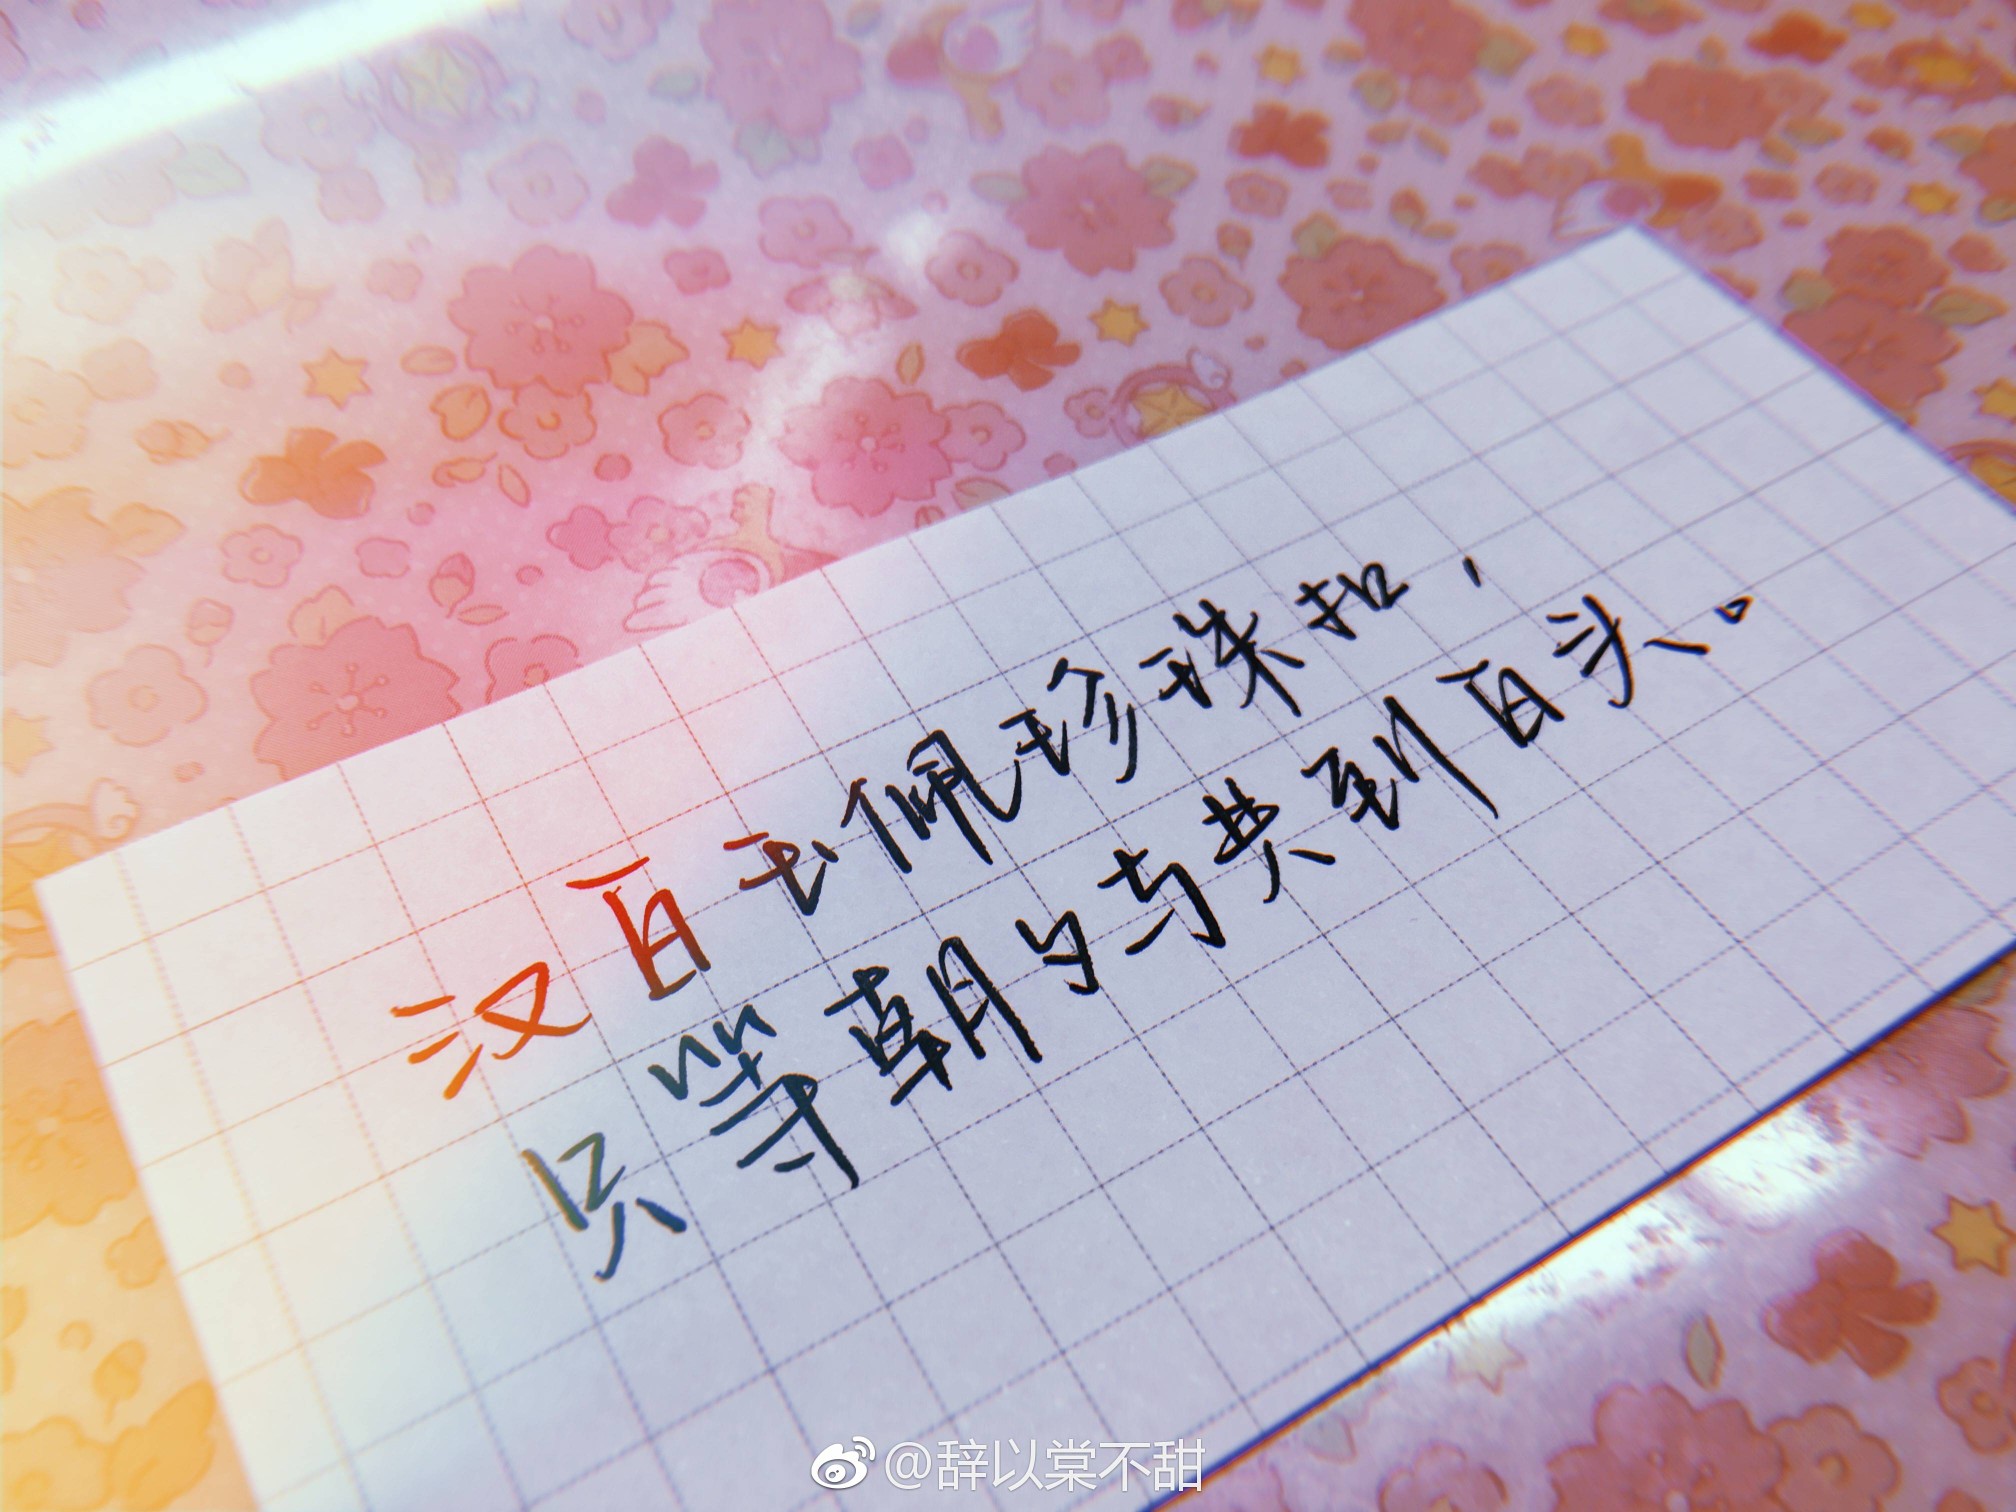 汉百玉佩珍珠扣，
只等朝夕与共到百头。
@辞以棠不甜